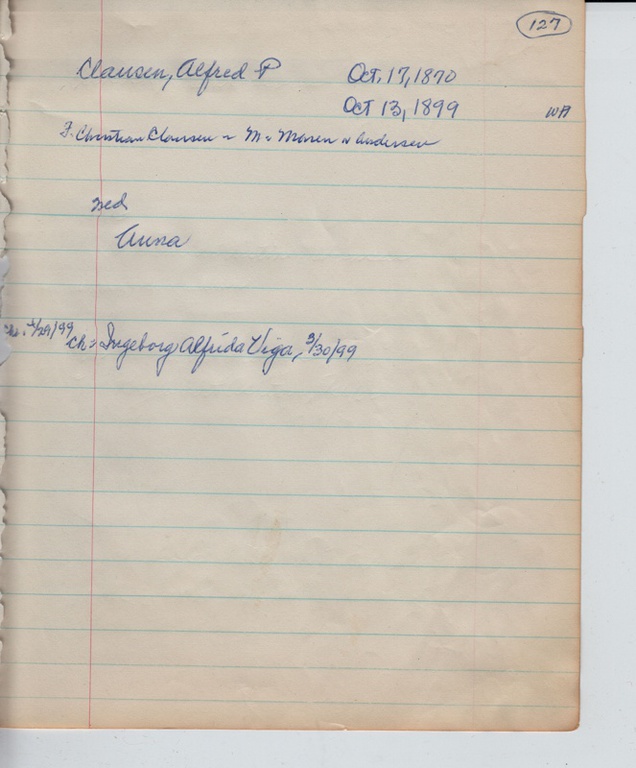 127
Clausen, Alfred P Oct. 17, 1870
Oct 13, 1899 WA
F. Christian Clausen = M = Maren v Andersen
med
Anna
5/29/99
Ch = Ingeborg Alfrida Viga, 3/30/99